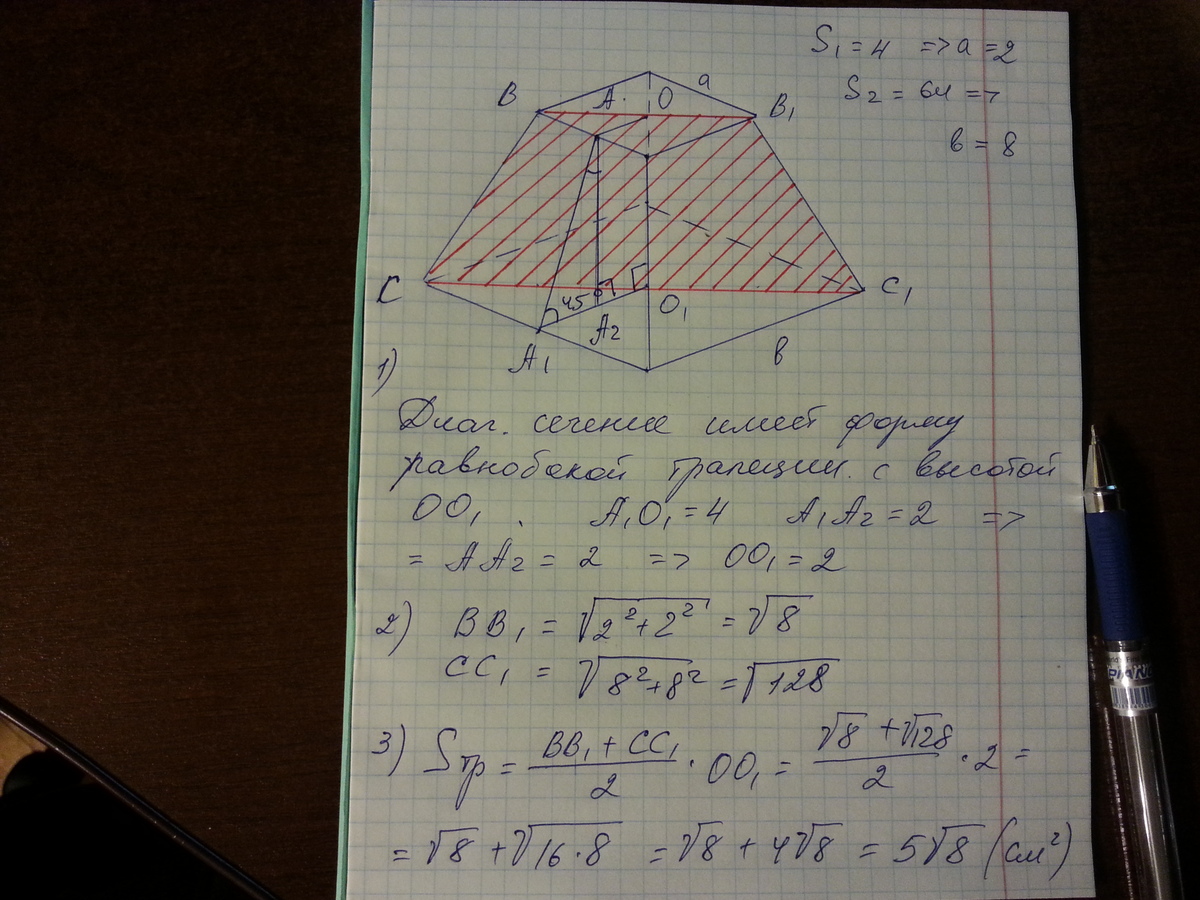 S₁ = 4 => a = 2
S₂ = 64 =>
в = 8
a
B A O B₁
C 45° O₁ C₁
A₂
A₁ в
1)
Диаг. сечение имеет форму
равнобокой трапеции. с высотой
OO₁. A₁O₁ = 4 A₁A₂ = 2 =>
= AA₂ = 2 => OO₁ = 2
2) BB₁ = √(2² + 2²) = √8
CC₁ = √(8² + 8²) = √128
3) Sтр = (BB₁ + CC₁)/2 · OO₁ = (√8 + √128)/2 · 2 =
= √8 + √(16·8) = √8 + 4√8 = 5√8 (см²)